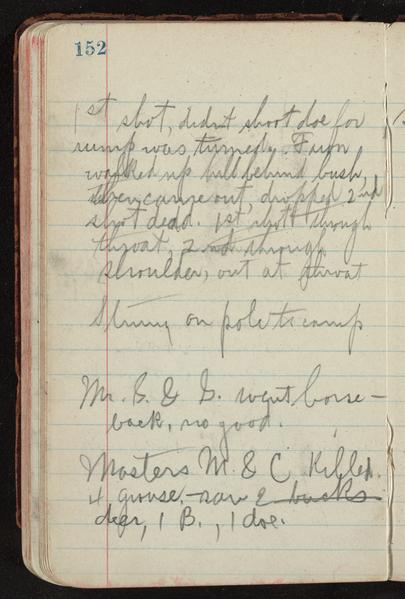 152
1st shot, didn't shoot doe for
rump was turned. Fawn
walked up hill behind bush,
then came out, dropped 2nd
shot dead. 1st shot through
throat, 2nd through
shoulder, out at throat
Strung on pole to camp
Mr. B. & G. went horse-
back, no good.
Masters M. & C. killed
4 grouse, - saw 2 bucks
deer, 1 B., 1 doe.